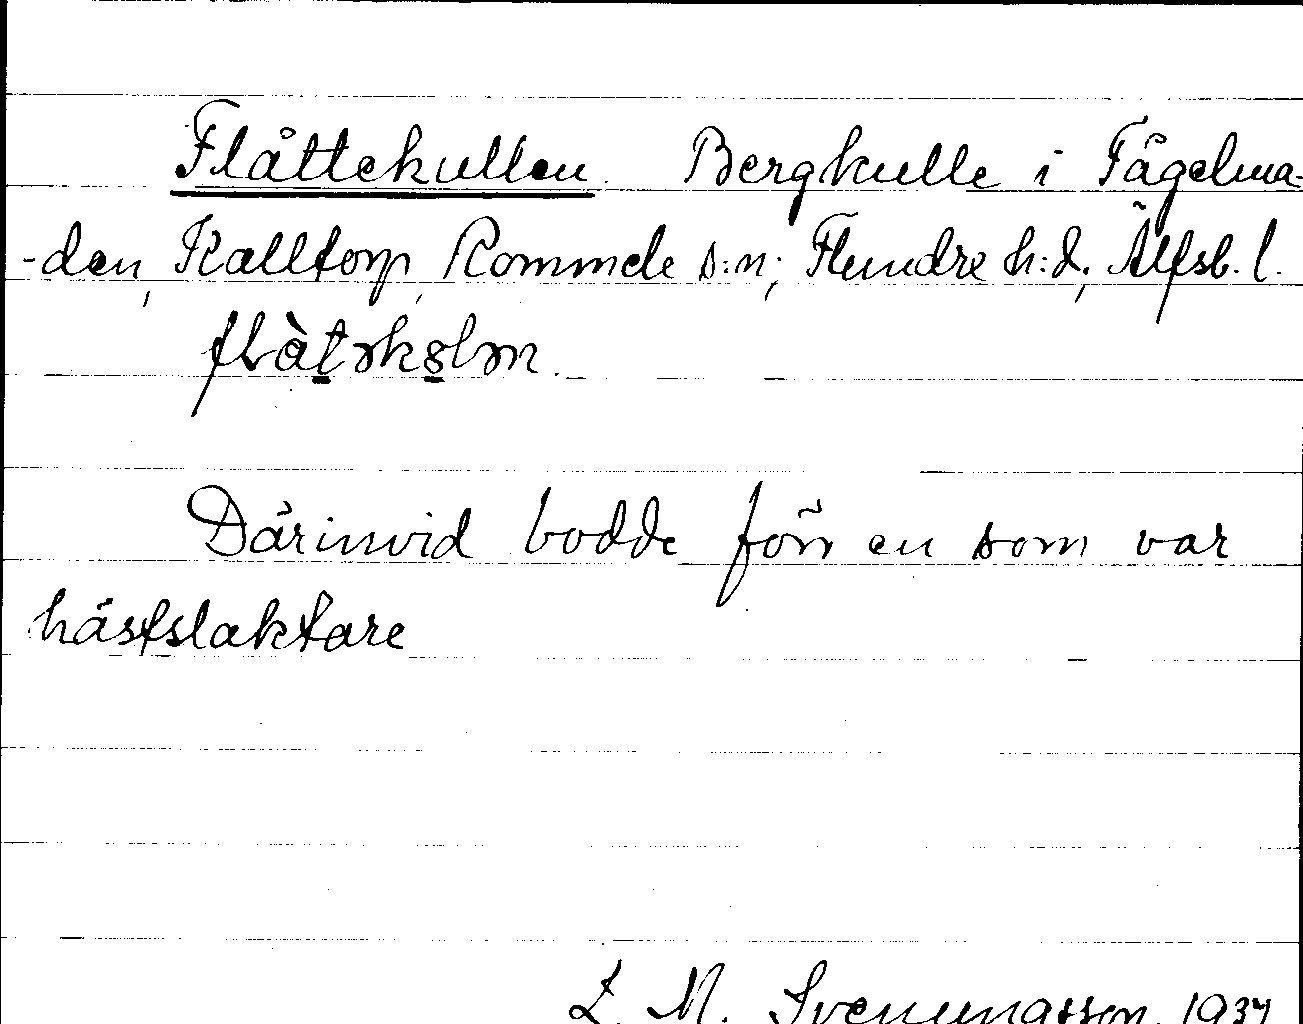 Flåttekullen. Bergkulle i Fågelma-
-den, Kalltorp, Rommele s:n; Flundre h:d, Älfsb. l.
Därinvid bodde förr en som var
hästslaktare
L. M. Svenungsson 1937